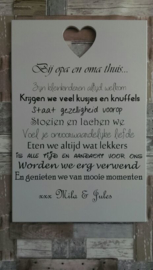 Bij opa en oma thuis...
Zijn kleinkinderen altijd welkom
Krijgen we veel kusjes en knuffels
Staat gezelligheid voorop
Stoeien en lachen we
Voel je onvoorwaardelijke liefde
Eten we altijd wat lekkers
Is alle tijd en aandacht voor ons
Worden we erg verwend
En genieten we van mooie momenten
xxx Mila & Jules